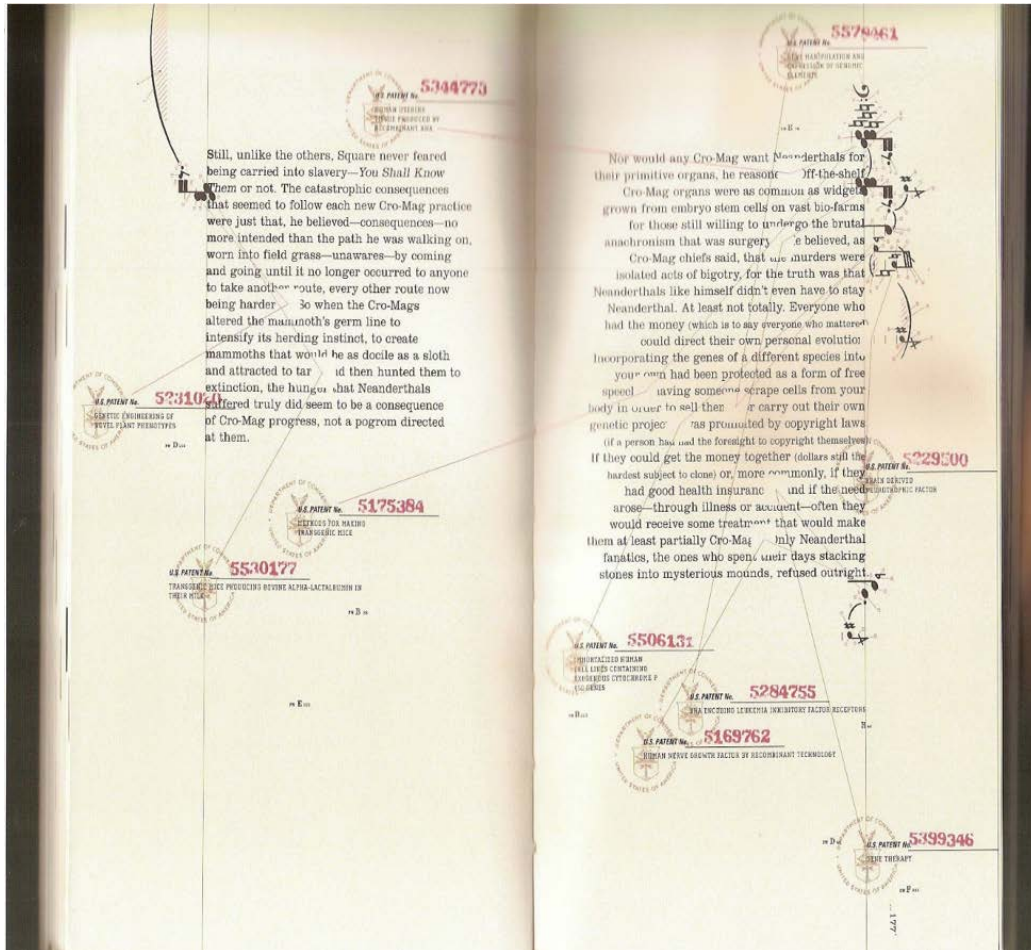 U.S. PATENT No. 5344773
HUMAN
PRODUCED BY
RECOMBINANT DNA
Still, unlike the others, Square never feared
being carried into slavery—You Shall Know
Them or not. The catastrophic consequences
that seemed to follow each new Cro-Mag practice
were just that, he believed—consequences—no
more intended than the path he was walking on,
worn into field grass—unawares—by coming
and going until it no longer occurred to anyone
to take another route, every other route now
being harder So when the Cro-Mags
altered the mammoth's germ line to
intensify its herding instinct, to create
mammoths that would be as docile as a sloth
and attracted to tar nd then hunted them to
extinction, the hunger that Neanderthals
suffered truly did seem to be a consequence
of Cro-Mag progress, not a pogrom directed
at them.
U.S. PATENT No. 5231020
GENETIC ENGINEERING OF
NOVEL PLANT PHENOTYPES
U.S. PATENT No. 5175384
METHODS FOR MAKING
TRANSGENIC MICE
U.S. PATENT No. 5530177
TRANSGENIC MICE PRODUCING BOVINE ALPHA-LACTALBUMIN IN
THEIR MILK
U.S. PATENT No. 5579461
MANIPULATION AND
EXPRESSION OF GENOMIC
ELEMENTS
Nor would any Cro-Mag want Neanderthals for
their primitive organs, he reasone Off-the-shelf
Cro-Mag organs were as common as widgets
grown from embryo stem cells on vast bio-farms
for those still willing to undergo the brutal
anachronism that was surgery e believed, as
Cro-Mag chiefs said, that the murders were
isolated acts of bigotry, for the truth was that
Neanderthals like himself didn't even have to stay
Neanderthal. At least not totally. Everyone who
had the money (which is to say everyone who mattered)
could direct their own personal evolution
Incorporating the genes of a different species into
your own had been protected as a form of free
speec aving someone scrape cells from your
body in order to sell then or carry out their own
genetic projec as promoted by copyright laws
(if a person had had the foresight to copyright themselves)
If they could get the money together (dollars still the
hardest subject to clone) or, more commonly, if they
had good health insuranc and if the need
arose—through illness or accident—often they
would receive some treatment that would make
them at least partially Cro-Mag Only Neanderthal
fanatics, the ones who spent their days stacking
stones into mysterious mounds, refused outright
U.S. PATENT No. 5229500
BRAIN DERIVED
NEUROTROPHIC FACTOR
U.S. PATENT No. 5506131
IMMORTALIZED HUMAN
CELL LINES CONTAINING
EXOGENOUS CYTOCHROME P
450 GENES
U.S. PATENT No. 5284755
DNA ENCODING LEUKEMIA INHIBITORY FACTOR RECEPTORS
U.S. PATENT No. 5169762
HUMAN NERVE GROWTH FACTOR BY RECOMBINANT TECHNOLOGY
U.S. PATENT No. 5399346
GENE THERAPY
177